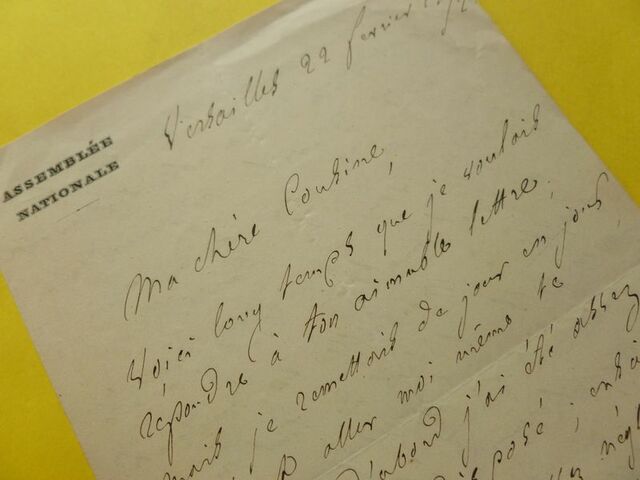 ASSEMBLÉE
NATIONALE
Versailles 22 fevrier
Ma chère Cousine,
Voici long temps que je voulais
répondre à ton aimable lettre,
mais je remettais de jour en jour,
aller moi même te
d'abord j'ai été assez